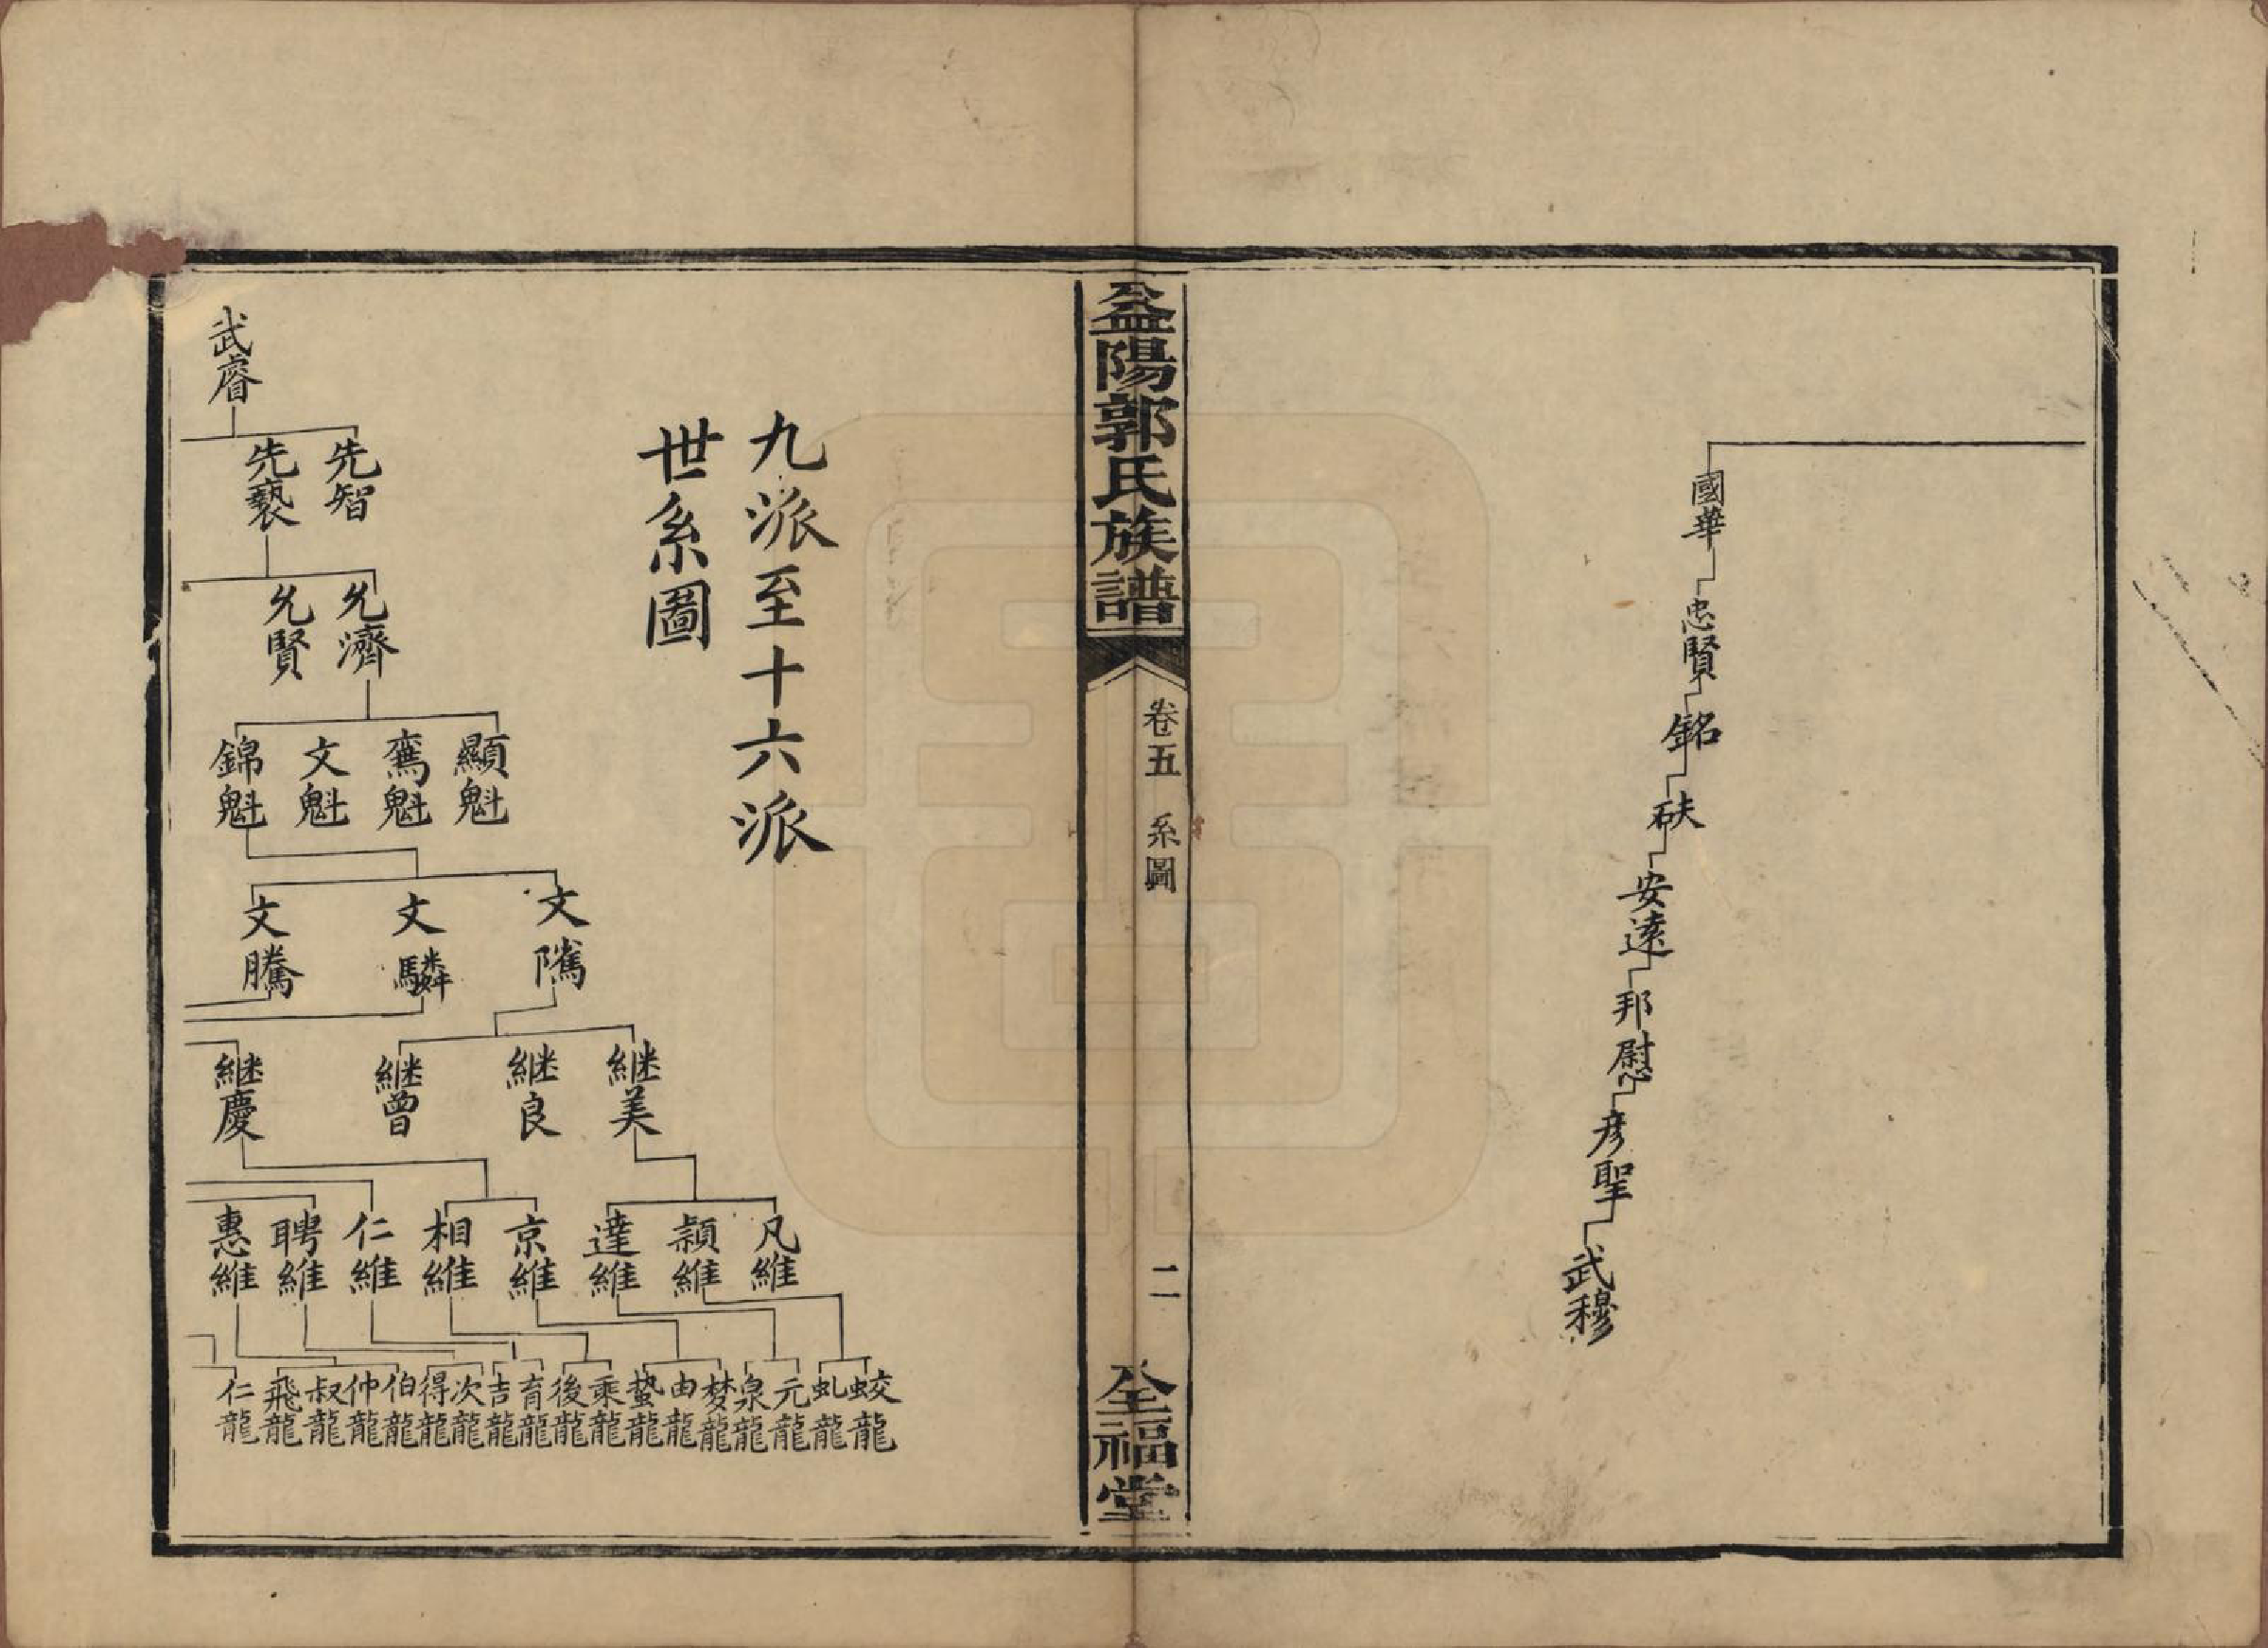 國華
忠賢
銘
砆
安遠
邦慰
彥聖
武穆
益陽郭氏族譜
卷五 系圖
二
全福堂
九派至十六派
世系圖
武睿
先智
先褻
允濟
允賢
顯魁
鴌魁
文魁
錦魁
文隲
文驎
文騰
継美
継良
継曾
継慶
凡維
頴維
達維
京維
相維
仁維
聘維
惠維
蛟龍
虬龍
元龍
泉龍
梦龍
由龍
蟄龍
乘龍
後龍
育龍
吉龍
次龍
得龍
伯龍
仲龍
叔龍
飛龍
仁龍